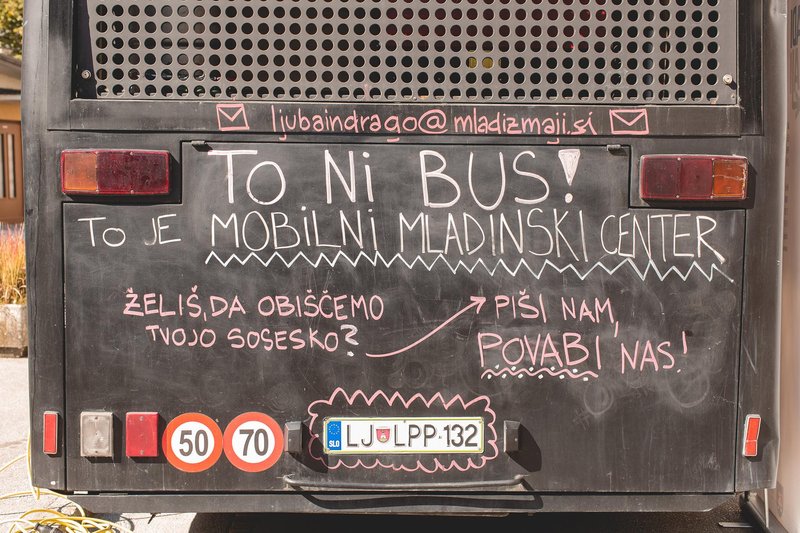 ljubaindrago@mladizmaji.si
TO Ni BUS!
TO JE MOBiLNi MLADiNSKi CENTER
ŽELiŠ, DA OBiŠČEMO
TVOJO SOSESKO?
PiŠi NAM,
POVABi NAS!
50 70
SLO LJ LPP-132